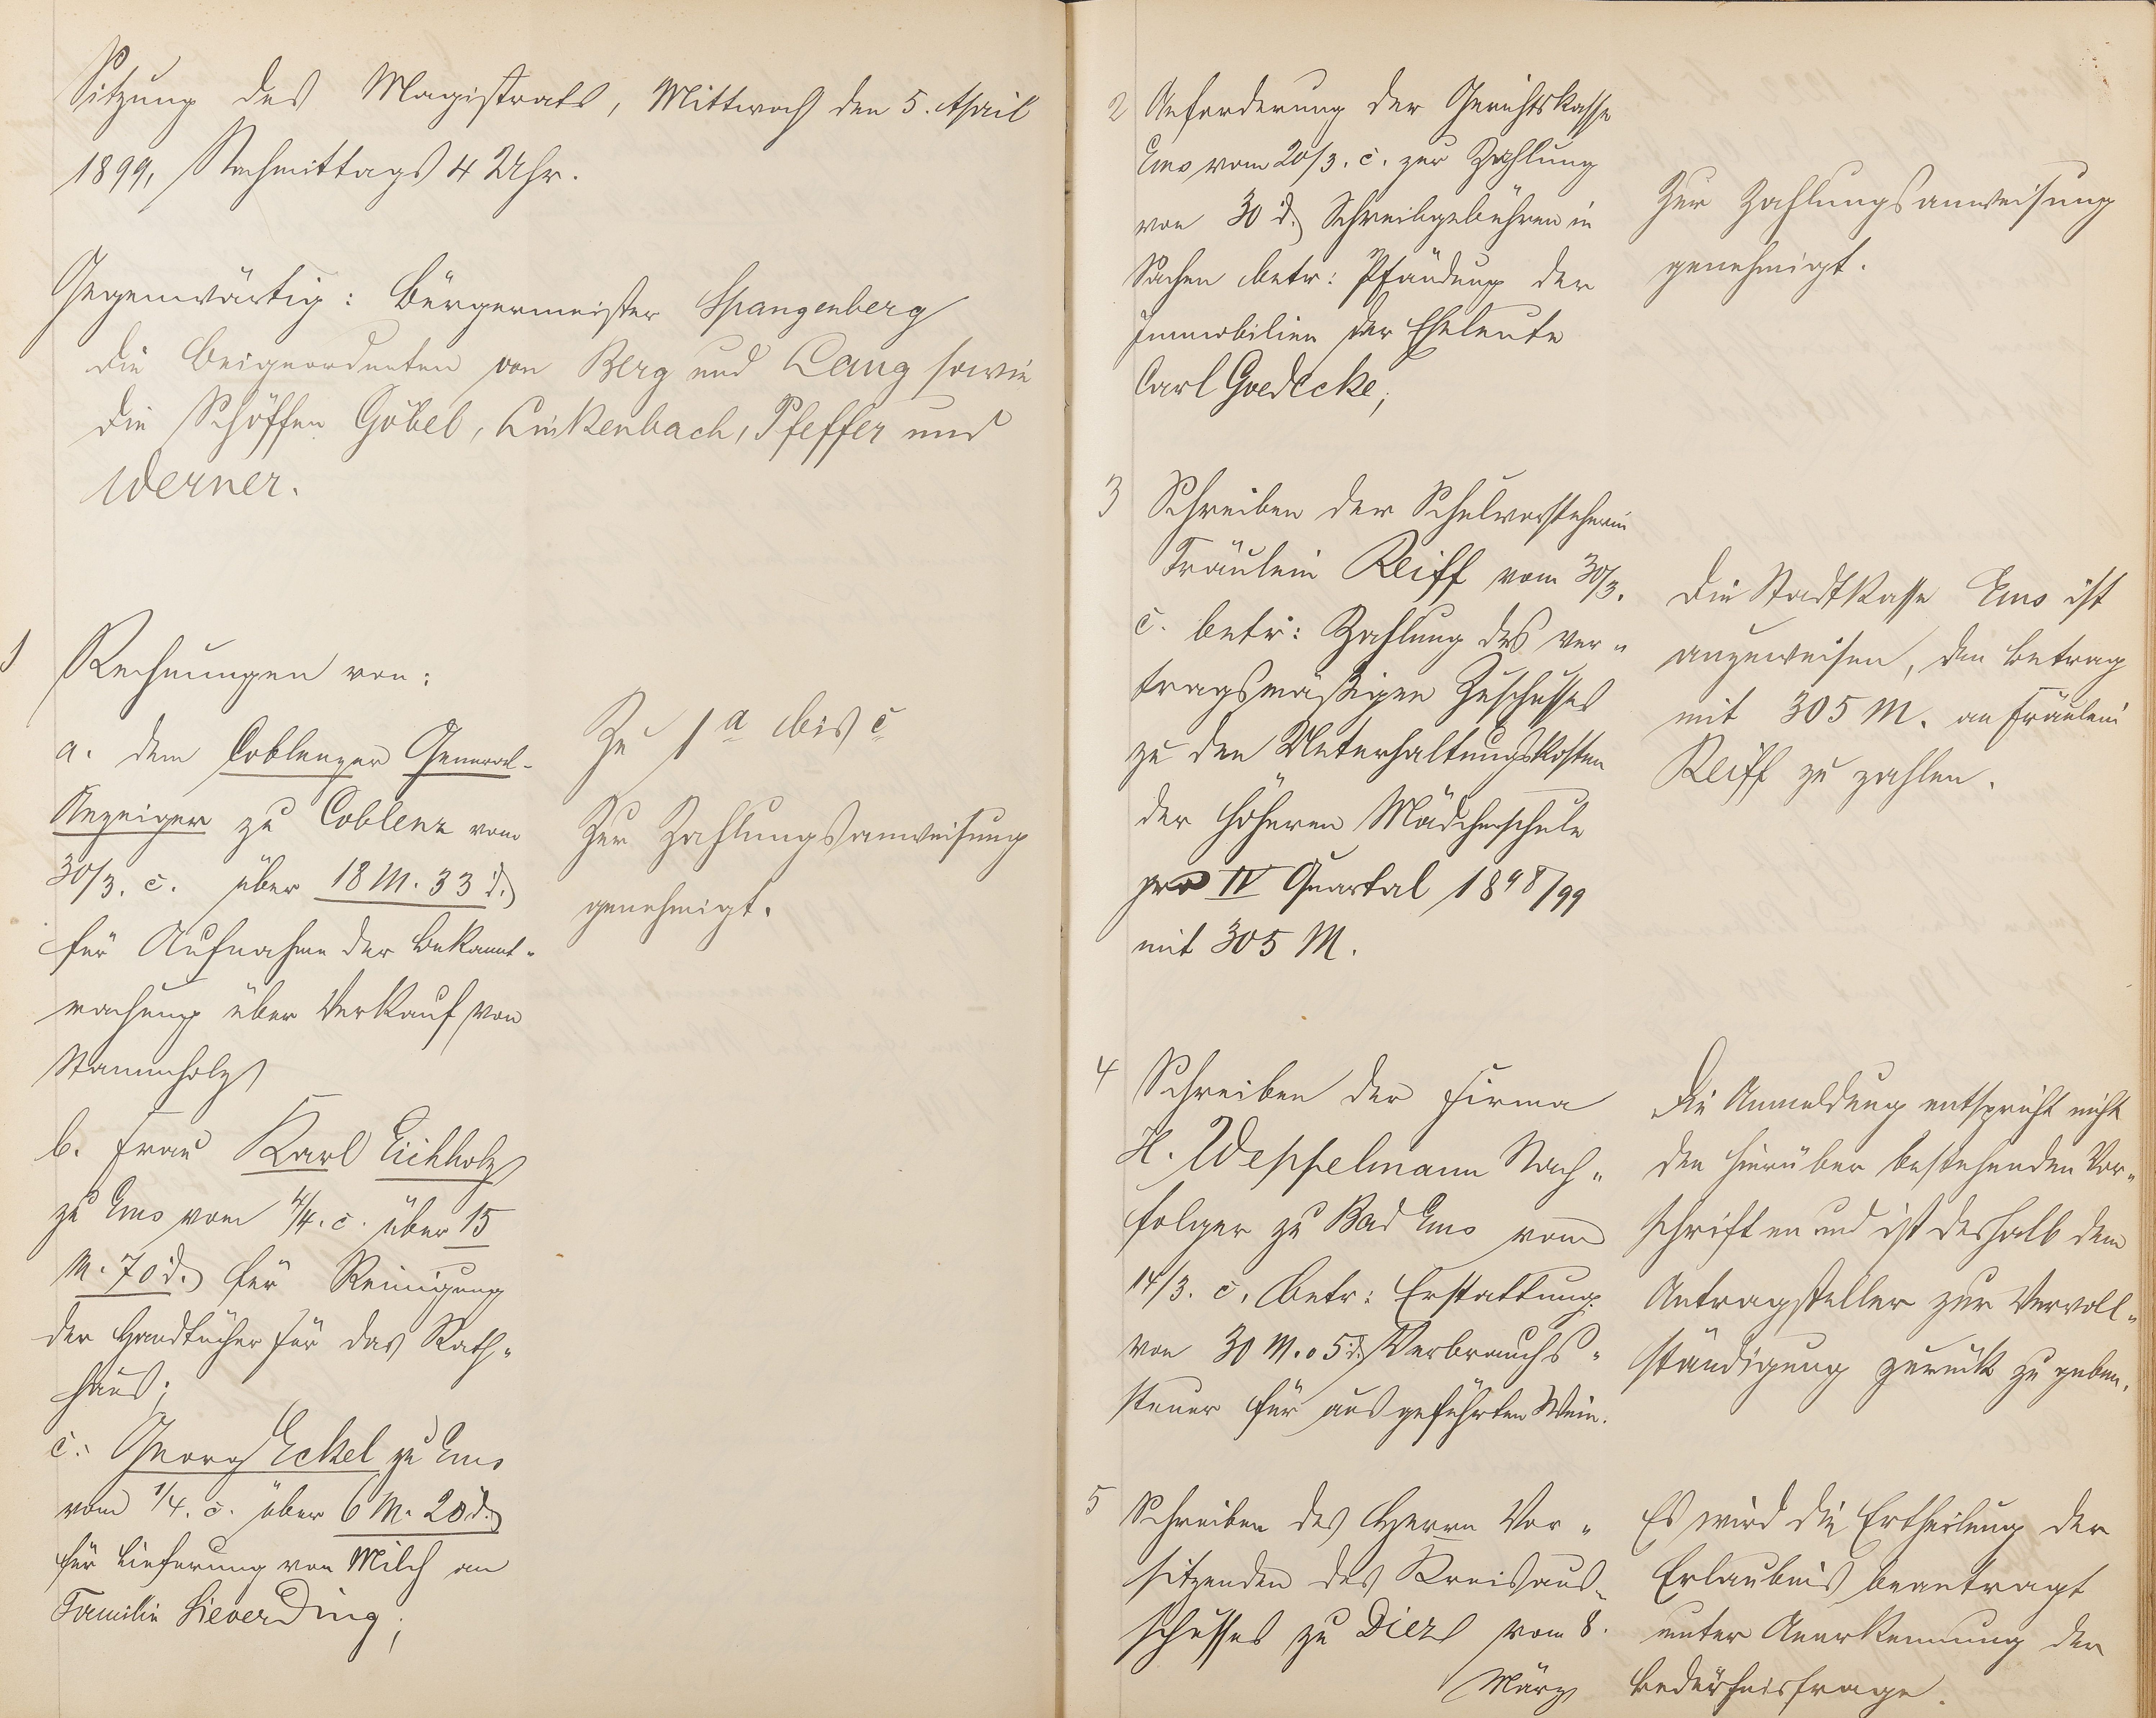 Sitzung des Magistrats, Mittwoch den 5. April
1899, Nachmittags 4 Uhr.
Gegenwärtig: Bürgermeister Spangenberg
die Beigeordneten von Berg und Lang sowie
die Schöffen Göbel, Linkenbach, Pfeffer und
Werner.
1 Rechnungen von:
a. dem Coblenzer General-
Anzeiger zu Coblenz vom
30/3. c. über 18 M. 33 d.
für Aufnahme der Bekannt-
machung über Verkauf von
Stammholz
b. Frau Karl Eichholz
zu Ems vom 4/4. c. über 15
M. 70 d. für Reinigung
der Handtücher für das Rath-
haus;
c. Georg Eckel zu Ems
vom 1/4. c. über 6 M. 20 d.
für Lieferung von Milch an
Familie Sieverding;
Zu 1 a bis c
Zur Zahlungsanweisung
genehmigt.
2 Anforderung der Gerichtskasse
Ems vom 20/3. c. zur Zahlung
von 30 d. Schreibgebühren in
Sachen betr: Pfändung der
Immobilien der Eheleute
Carl Goedecke;
Zur Zahlungsanweisung
genehmigt.
3 Schreiben der Schulvorsteherin
Fräulein Reiff vom 30/3.
c. betr: Zahlung des ver-
tragsmäßigen Zuschusses
zu den Unterhaltungskosten
der höheren Mädchenschule
pro IV Quartal 1898/99
mit 305 M.
Die Stadtkasse Ems ist
anzuweisen, den Betrag
mit 305 M. an Fräulein
Reiff zu zahlen.
4 Schreiben der Firma
H. Weppelmann Nach-
folger zu Bad Ems vom
14/3. c. betr: Erstattung
von 30 M. 05 d. Verbrauchs-
steuer für ausgeführten Wein.
Die Anmeldung entspricht nicht
den hierüber bestehenden Vor-
schriften und ist deshalb dem
Antragsteller zur Vervoll-
ständigung zurück zu geben.
5 Schreiben des Herrn Vor-
sitzenden des Kreisaus-
schusses zu Diez vom 8.
März
Es wird die Ertheilung der
Erlaubnis beantragt
unter Anerkennung der
Bedürfnisfrage.